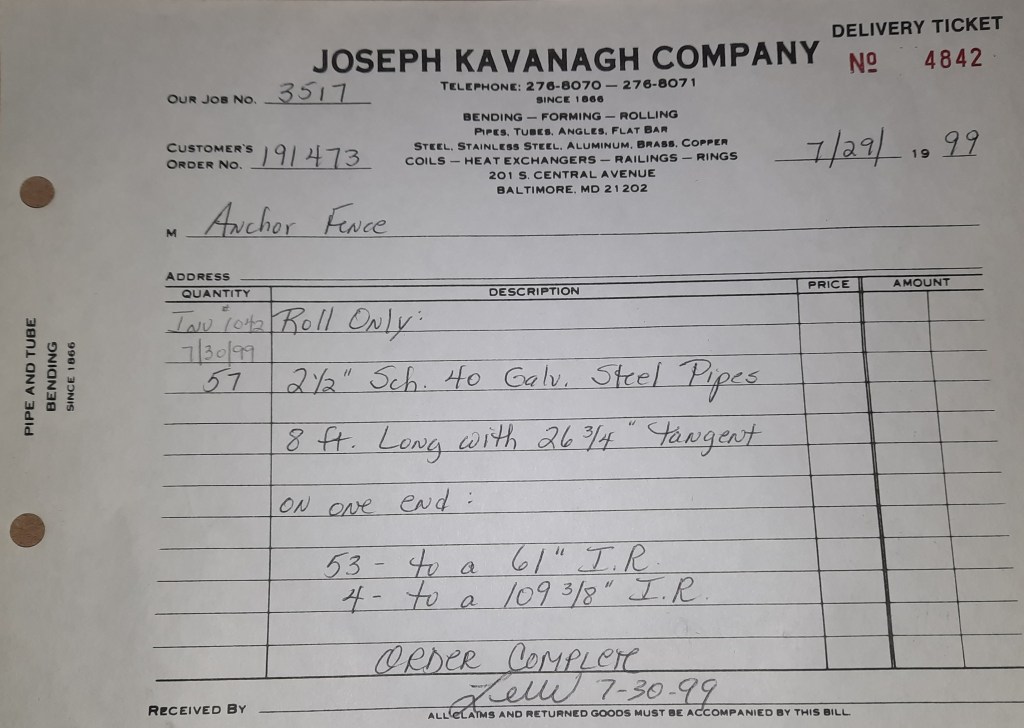 DELIVERY TICKET
JOSEPH KAVANAGH COMPANY
Nº 4842
TELEPHONE: 276-8070 — 276-8071
SINCE 1866
OUR JOB NO. 3517
BENDING — FORMING — ROLLING
PIPES, TUBES, ANGLES, FLAT BAR
STEEL, STAINLESS STEEL, ALUMINUM, BRASS, COPPER
COILS — HEAT EXCHANGERS — RAILINGS — RINGS
201 S. CENTRAL AVENUE
BALTIMORE, MD 21202
CUSTOMER'S
ORDER NO. 191473
7/29/ 19 99
M Anchor Fence
ADDRESS
QUANTITY DESCRIPTION PRICE AMOUNT
Inv # 1042 Roll Only:
7/30/99
57 2½" Sch. 40 Galv. Steel Pipes
8 ft. Long with 26 3/4" tangent
on one end:
53 - to a 61" I.R.
4 - to a 109 3/8" I.R.
ORDER COMPLETE
7-30-99
RECEIVED BY
ALL CLAIMS AND RETURNED GOODS MUST BE ACCOMPANIED BY THIS BILL
PIPE AND TUBE
BENDING
SINCE 1866